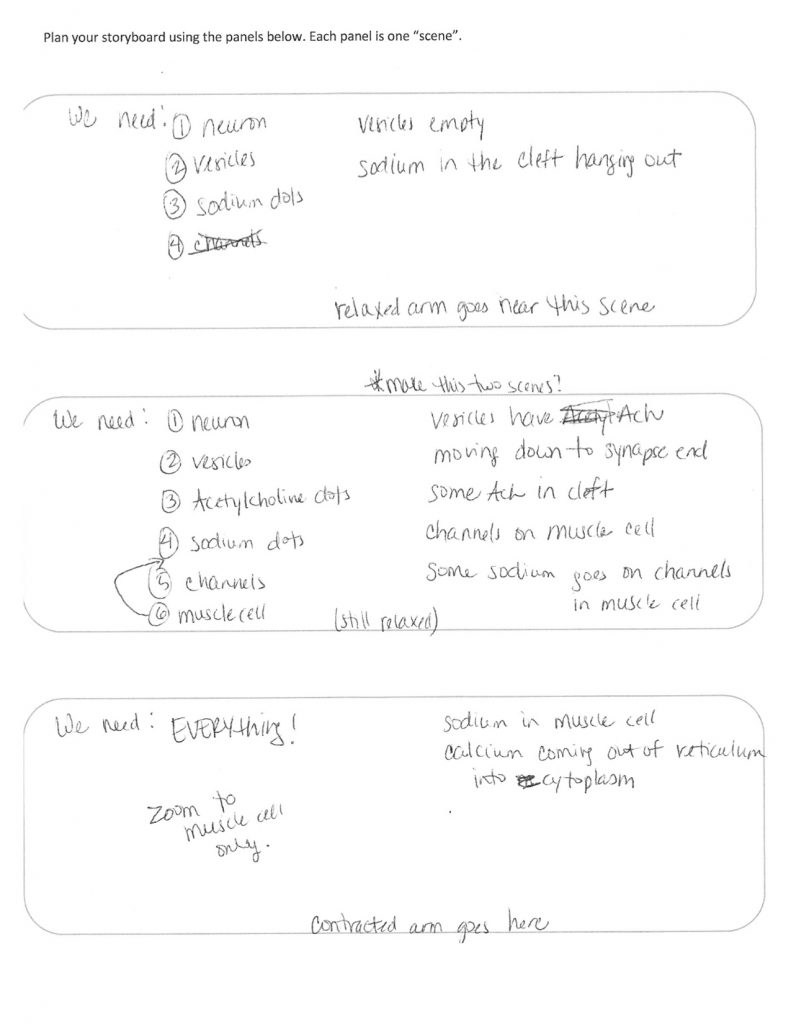 Plan your storyboard using the panels below. Each panel is one “scene”.
We need: ① neuron
② vesicles
③ sodium dots
④ channels
vesicles empty
sodium in the cleft hanging out
relaxed arm goes near this scene
*make this two scenes?
We need: ① neuron
② vesicles
③ Acetylcholine dots
④ sodium dots
⑤ channels
⑥ muscle cell
(still relaxed)
vesicles have Ach
moving down to synapse end
some Ach in cleft
channels on muscle cell
some sodium goes on channels
in muscle cell
We need: EVERYthing!
zoom to
muscle cell
only.
sodium in muscle cell
calcium coming out of reticulum
into cytoplasm
contracted arm goes here